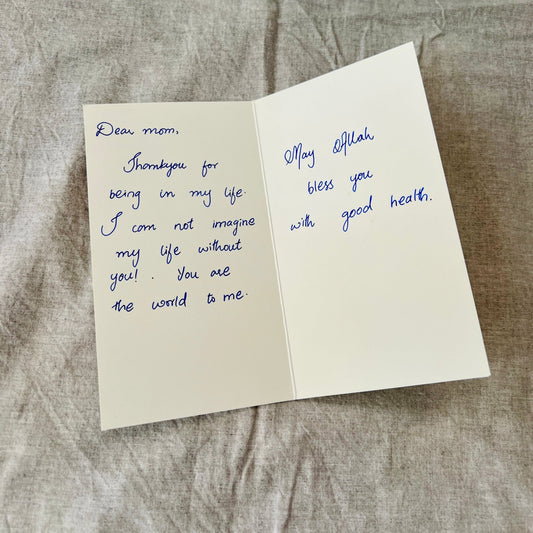 Dear mom,
Thankyou for
being in my life.
I can not imagine
my life without
you! . You are
the world to me.
May Allah
bless you
with good health.